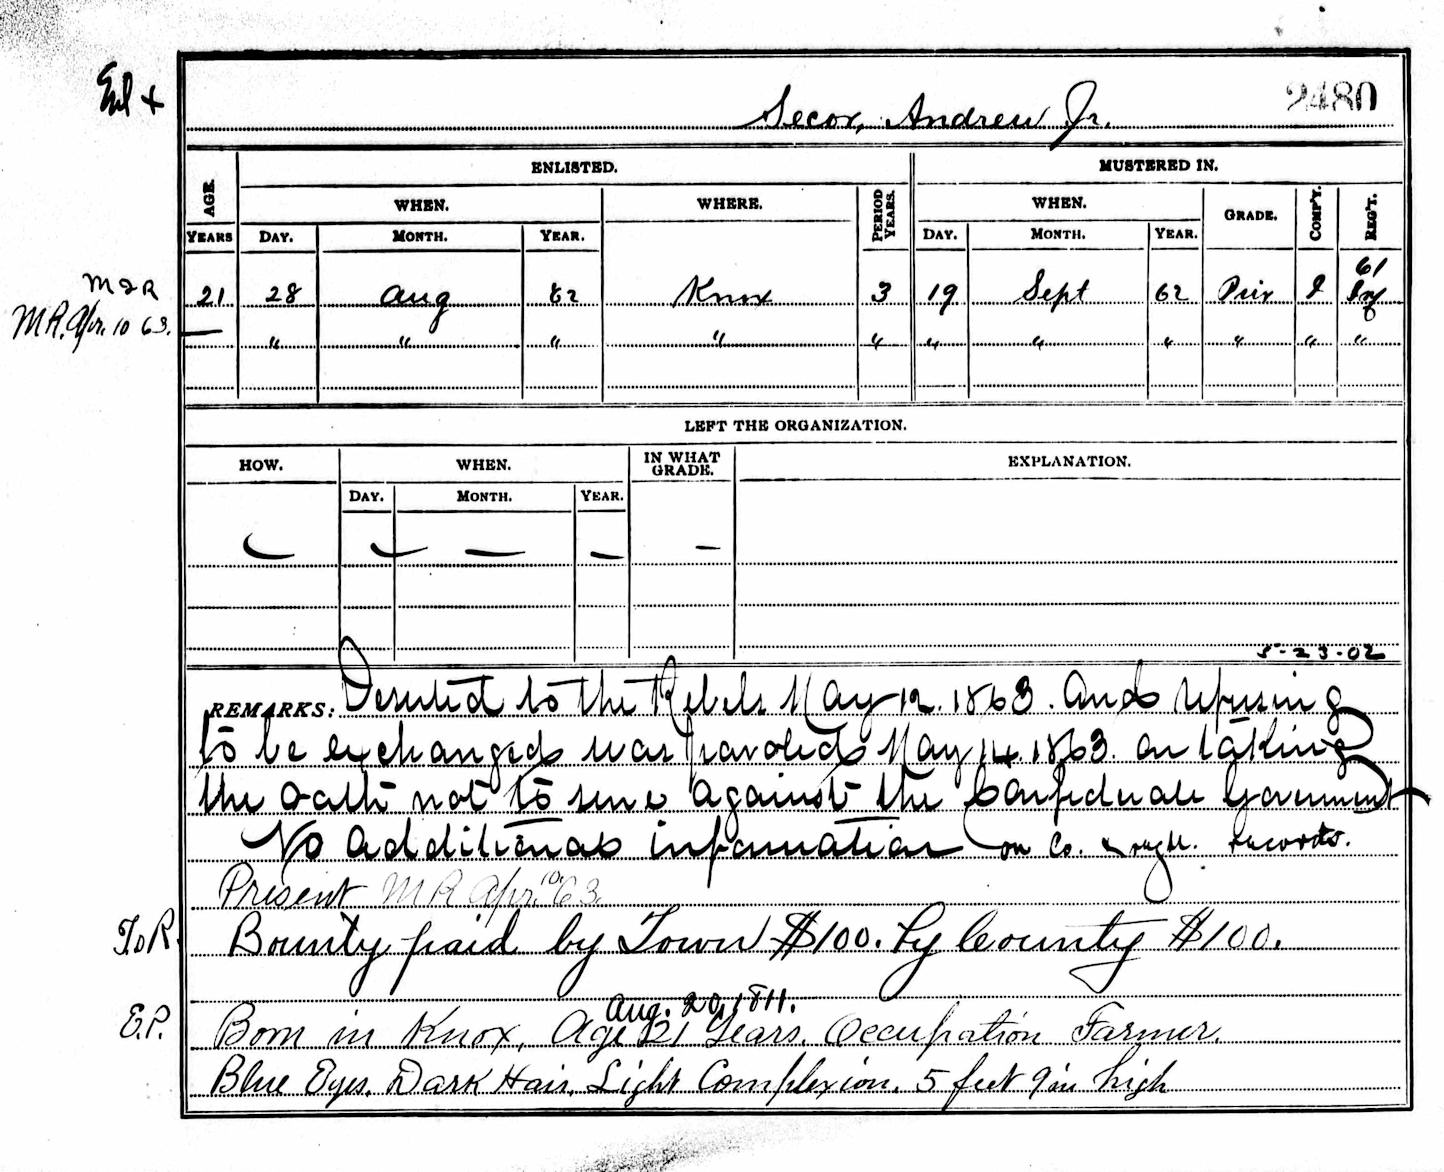 Enl +
Secor, Andrew Jr.
2480
ENLISTED.
MUSTERED IN.
AGE.
WHEN.
WHERE.
PERIOD YEARS.
WHEN.
GRADE.
COMP'Y.
REG'T.
YEARS
DAY.
MONTH.
YEAR.
DAY.
MONTH.
YEAR.
M I R
21 28 Aug 62 Knox 3 19 Sept 62 Priv I 61 Inf
M.R. Apr. 10 63. — " " " " " " " " " " "
LEFT THE ORGANIZATION.
HOW.
WHEN.
IN WHAT GRADE.
EXPLANATION.
DAY.
MONTH.
YEAR.
— — — — —
5-23-02
REMARKS: Deserted to the Rebels May 12. 1863. And refusing
to be exchanged was paroled May 14. 1863. on taking
the oath not to serve against the Confederate Government
No additional information on Co. records.
Present M R Apr. 10. 63.
T o R. Bounty paid by Town $100. by County $100.
Aug. 20,
E.P. Born in Knox, Age 21 Years. Occupation Farmer.
Blue Eyes. Dark Hair, Light Complexion. 5 feet 9 in high